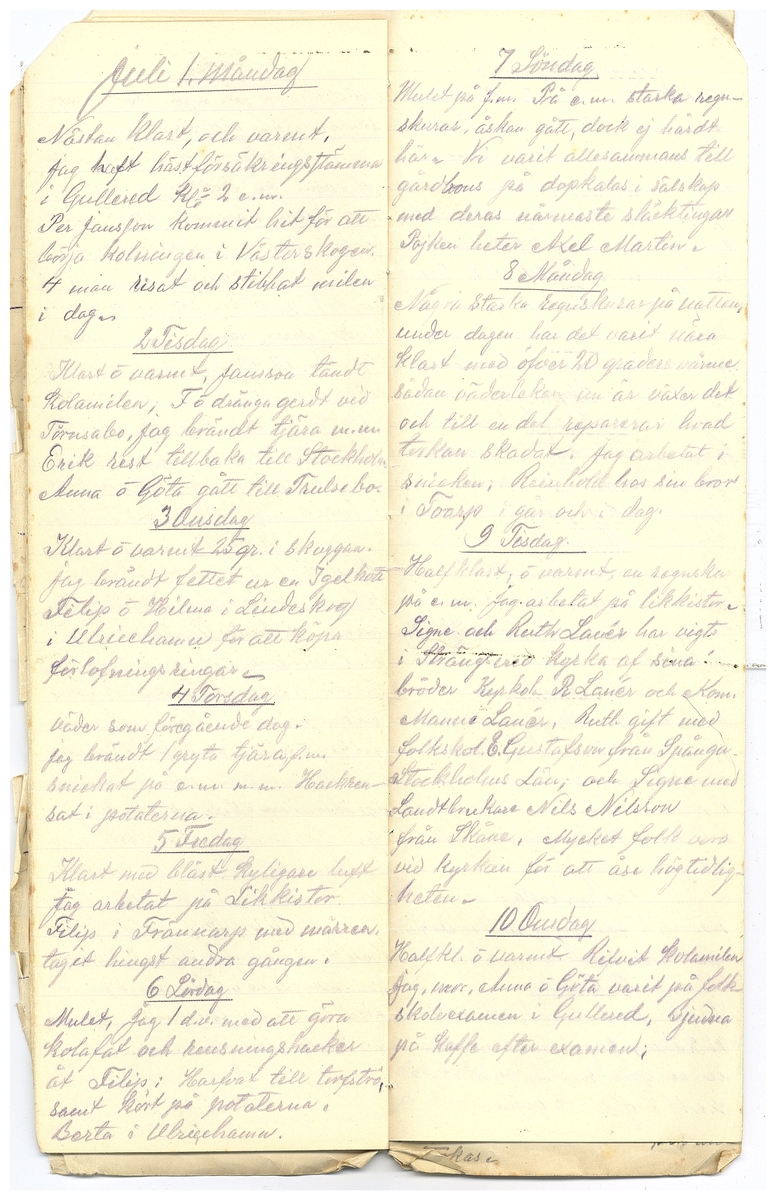 Juli 1. Måndag
Nästan klart, och varmt.
Jag haft hästförsäkringsstämma
i Gullered kl. 2 e.m.
Per Jansson kommit hit för att
börja kolningen i Västerskogen.
4 man risat och stibbat milen
i dag.
2 Tisdag
Klart ö varmt, Jansson tändt
Kolamilen; F ö dräng gerdt vid
Törnsabo, jag brändt tjära m.m
Erik rest tillbaka till Stockholm
Anna ö Göta gått till Trulsebo.
3 Onsdag
Klart ö varmt 25 gr. i skuggan.
jag brändt fettet ur en Igelkott
Filip ö Hilma i Lindeskog
i Ulricehamn för att köpa
förlofningsringar
4 Torsdag
väder som föregående dag.
jag brändt 1 gryta tjära f.m.
snickat på e.m. m.m. Hackren-
sat i potaterna.
5 Fredag
Klart med blåst kyligare luft
Jag arbetat på Likkistor
Filip i Frännarp med märren.
taget hingst andra gången.
6 Lördag
Mulet, jag 1 d.v. med att göra
kolafat och rensningshacker
åt Filip; Harfvat till torfströ,
samt kört på potaterna.
Berta i Ulricehamn.
7 Söndag
Mulet på f.m. På e.m. starka regn-
skurar, åskan gått, dock ej hårdt
här. Vi varit allesammans till
gårdbons på dopkalas i sälskap
med deras närmaste släcktingar
Pojken heter Axel Martin.
8 Måndag
Några starka regnskurar på natten,
under dagen har det varit nära
klart med öfver 20 graders värme.
sådan väderleken nu är växer det
och till en del reparerar hvad
torkan skadat. Jag arbetat i
snicken; Reinhold hos sin bror
i Toarp i går och i dag.
9 Tisdag.
Halfklart, ö varmt, en regnskur
på e.m. Jag arbetat på likkistor.
Signe och Ruth Lanér har vigts
i Strängsered kyrka af sina
bröder Kyrkoh R Lanér och Kom.
Manne Lanér. Ruth gift med
folkskol. E. Gustafson från Spånga
Stockholms Län; och Signe med
Landtbrukare Nils Nilsson
från Skåne. Mycket folk voro
vid kyrkan för att åse högtidlig-
heten.
10 Onsdag
Halfkl. ö varmt Rifvit kolamilen
Jag, mor, Anna ö Göta varit på folk-
skolexamen i Gullered, Bjudna
på Kaffe efter examen;